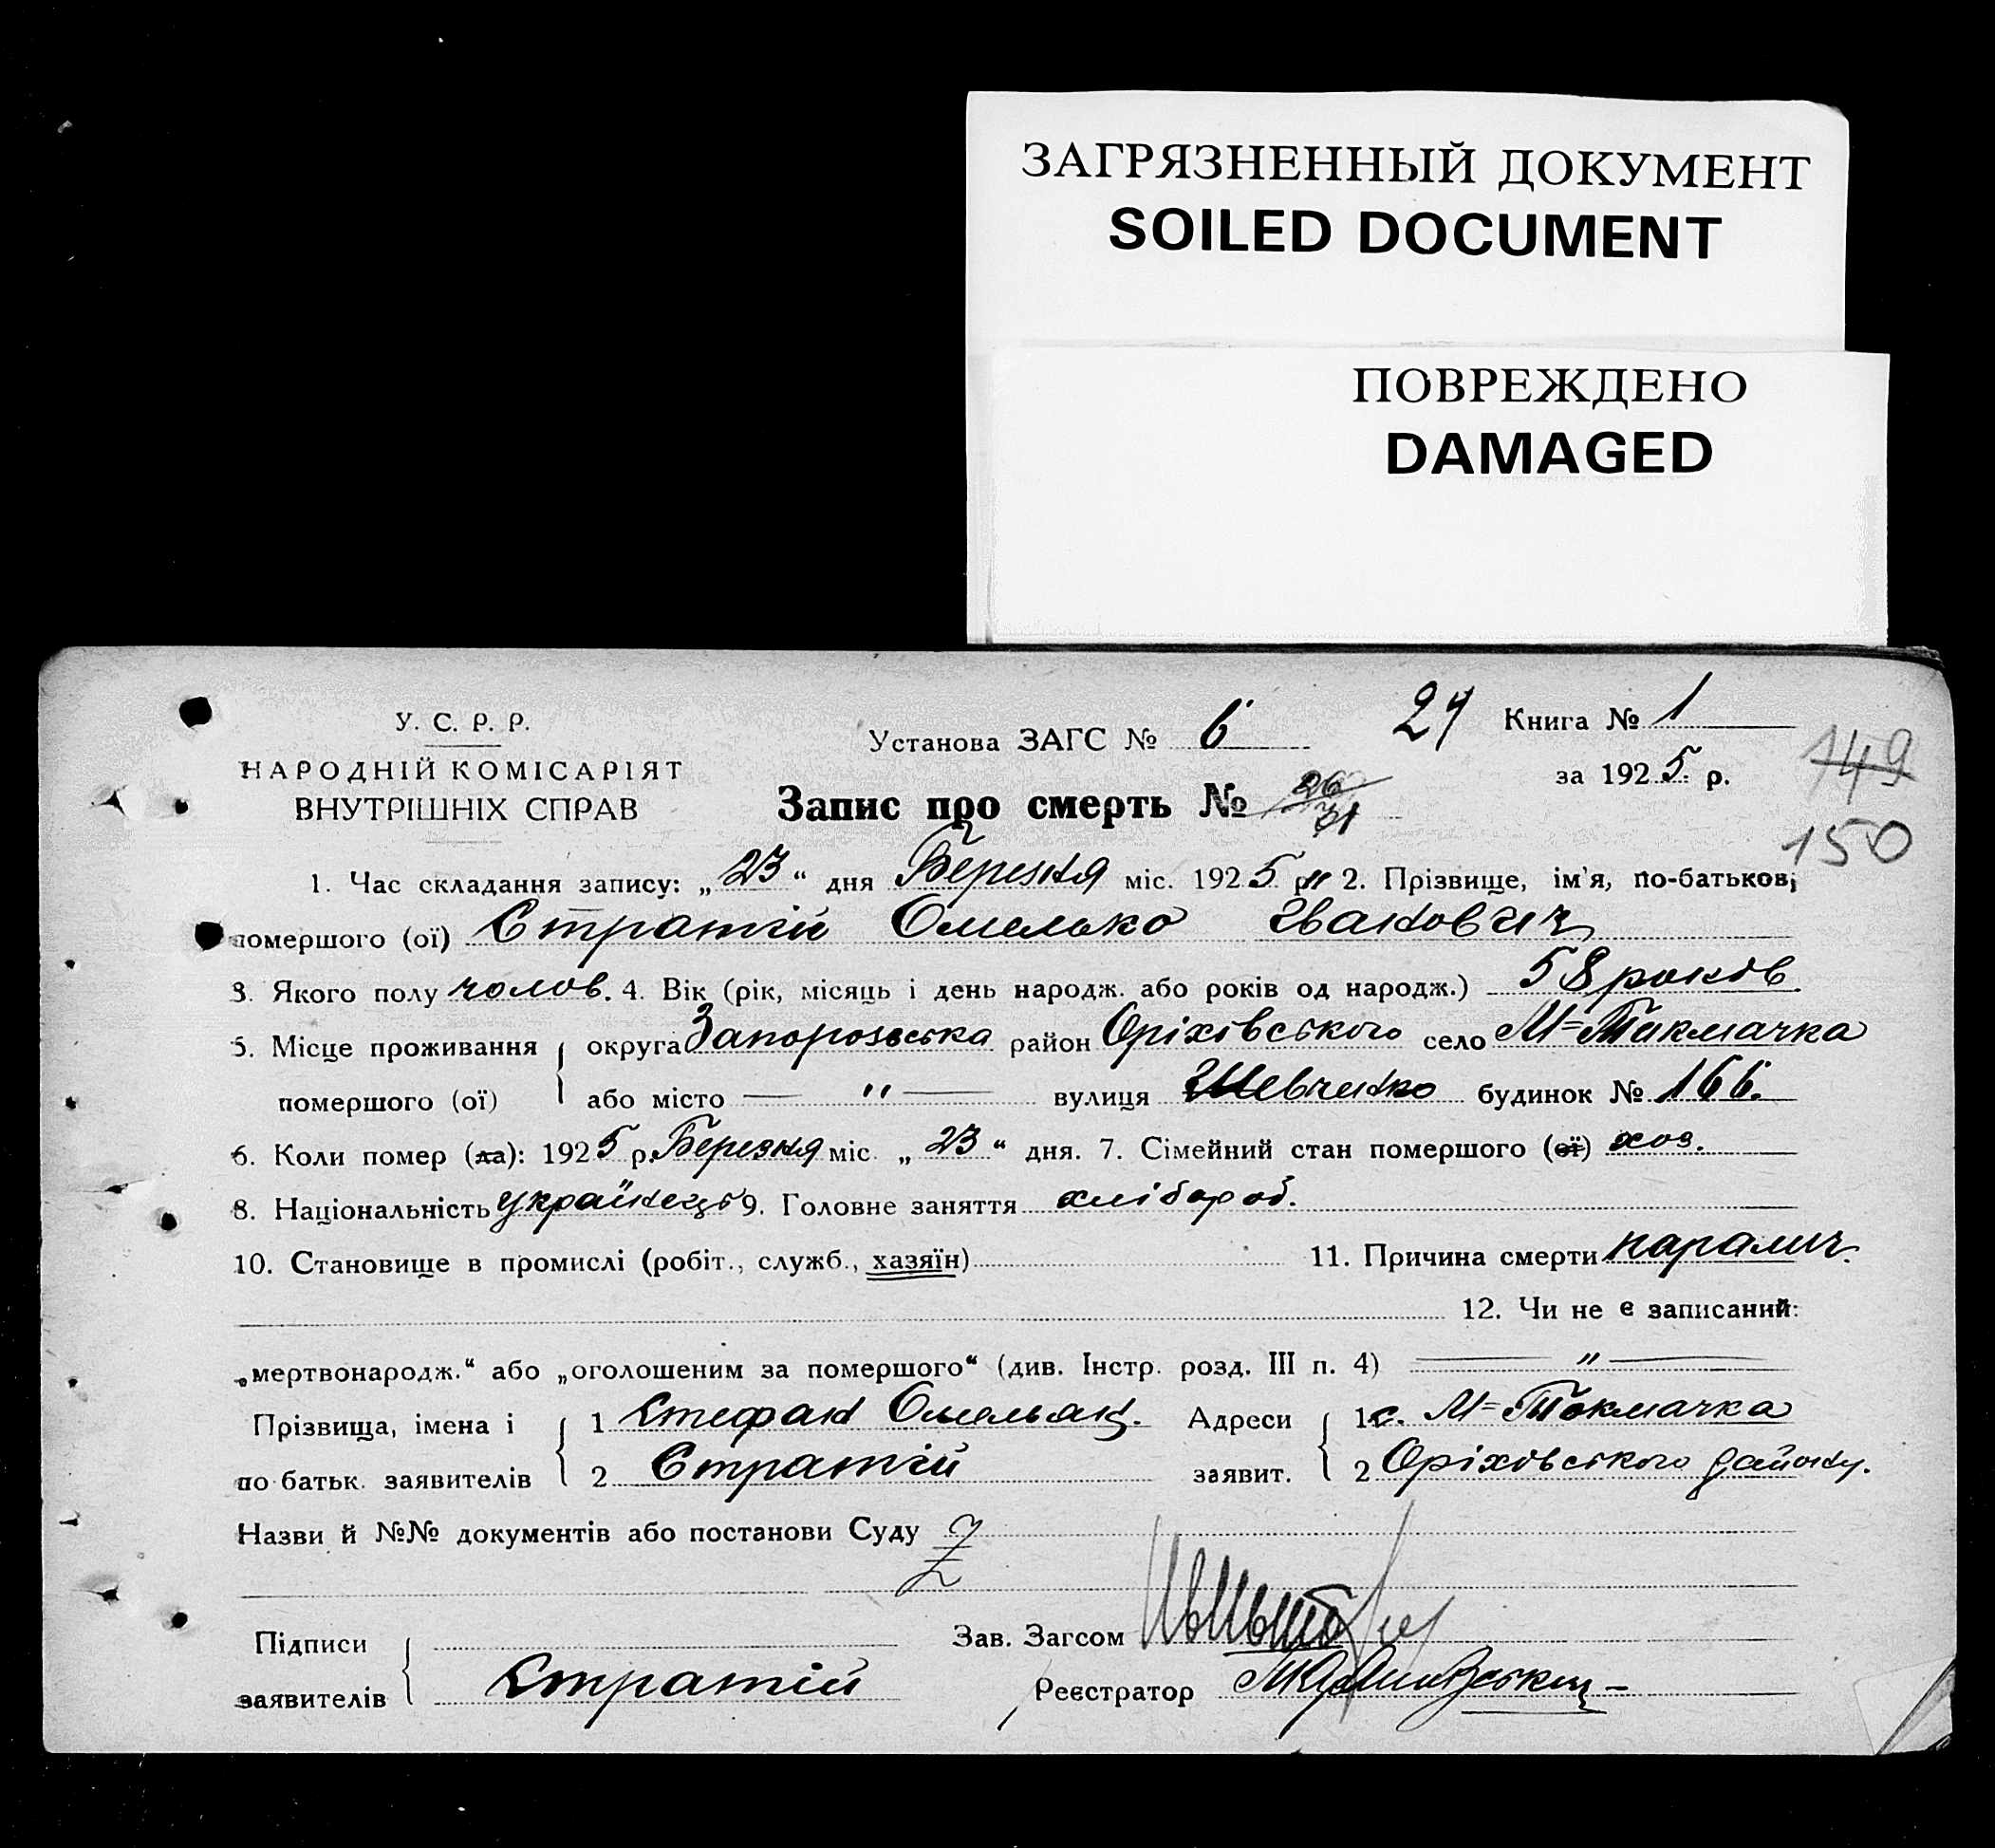 ЗАГРЯЗНЕННЫЙ ДОКУМЕНТ
SOILED DOCUMENT
ПОВРЕЖДЕНО
DAMAGED
У. С. Р. Р.
НАРОДНІЙ КОМІСАРІЯТ
ВНУТРІШНІХ СПРАВ
Установа ЗАГС № 6
Книга № 1
за 1925 р.
149
150
Запис про смерть № 26 31
1. Час складання запису: „23“ дня Березня міс. 1925 р. 2. Прізвище, ім'я, по-батькові
помершого (ої) Стратій Омелько Іванович
3. Якого полу чолов. 4. Вік (рік, місяць і день народж. або років од народж.) 58 років
5. Місце проживання округа Запорозьська район Оріхівського село М=Токмачка
помершого (ої) або місто — " — вулиця Шевченко будинок № 166.
6. Коли помер (ла): 1925 р. Березня міс. „23“ дня. 7. Сімейний стан помершого (ої) хоз.
8. Національність українець 9. Головне заняття хлібороб.
10. Становище в промислі (робіт., служб., хазяїн) 11. Причина смерти паралич.
12. Чи не є записаний:
„мертвонародж.“ або „оголошеним за помершого“ (див. Інстр. розд. III п. 4) — " —
Прізвища, імена і 1 Стефан Омельян. Адреси 1 с. М=Токмачка
по батьк. заявителів 2 Стратій заявит. 2 Оріхівського району.
Назви й №№ документів або постанови Суду Z
Підписи Зав. Загсом
заявителів Стратій Реєстратор